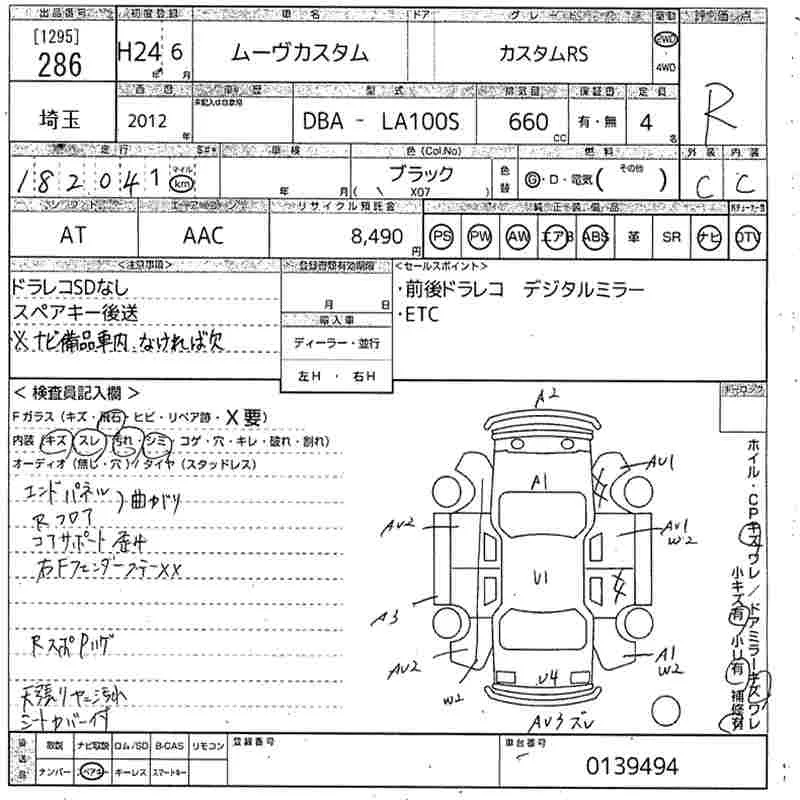 出品番号 初度登録 車名 ドア グレード 駆動 評価点
[1295]
286 H24年 6月 ムーヴカスタム カスタムRS 2WD・4WD R
西暦 車歴 型式 排気量 保証書 定員
未記入は自家用
埼玉 2012年 DBA - LA100S 660cc 有・無 4名
走行 車検 色(Col.No) 燃料 外装 内装
182041 マイル km 年 月 ブラック ( X07 ) 色替 G・D・電気( その他 ) C C
シフト エアコン リサイクル預託金 純正装備品
AT AAC 8,490円 PS PW AW エアB ABS 革 SR ナビ TV
<注意事項> 登録書類有効期限 <セールスポイント>
ドラレコSDなし 月 日 ・前後ドラレコ デジタルミラー
スペアキー後送 ・ETC
※ナビ備品車内なければ欠 輸入車
ディーラー・並行
左H・右H
<検査員記入欄>
Fガラス(キズ・飛石・ヒビ・リペア跡・X要)
内装(キズ・スレ・汚れ・シミ・コゲ・穴・キレ・破れ・割れ)
オーディオ(無し・穴)/タイヤ(スタッドレス)
エンドパネル
Rフロア )曲がり
コアサポート歪み
右FフェンダーステーXX
RスポPハゲ
天張りヤニ汚れ
シートカバー付
A2
A1 AU1
AU2 AU1
W2
U1
A3
AU2 A1
W2
W2 U4
AU3ズレ
ホイル・CPキズワレ/ドアミラーキズワレ
小キズ有 小U有 補修有
後送品 取説 ナビ取説 ロム/SD B-CAS リモコン 登録番号 車台番号
ナンバー スペアキー キーレス スマートキー 0139494